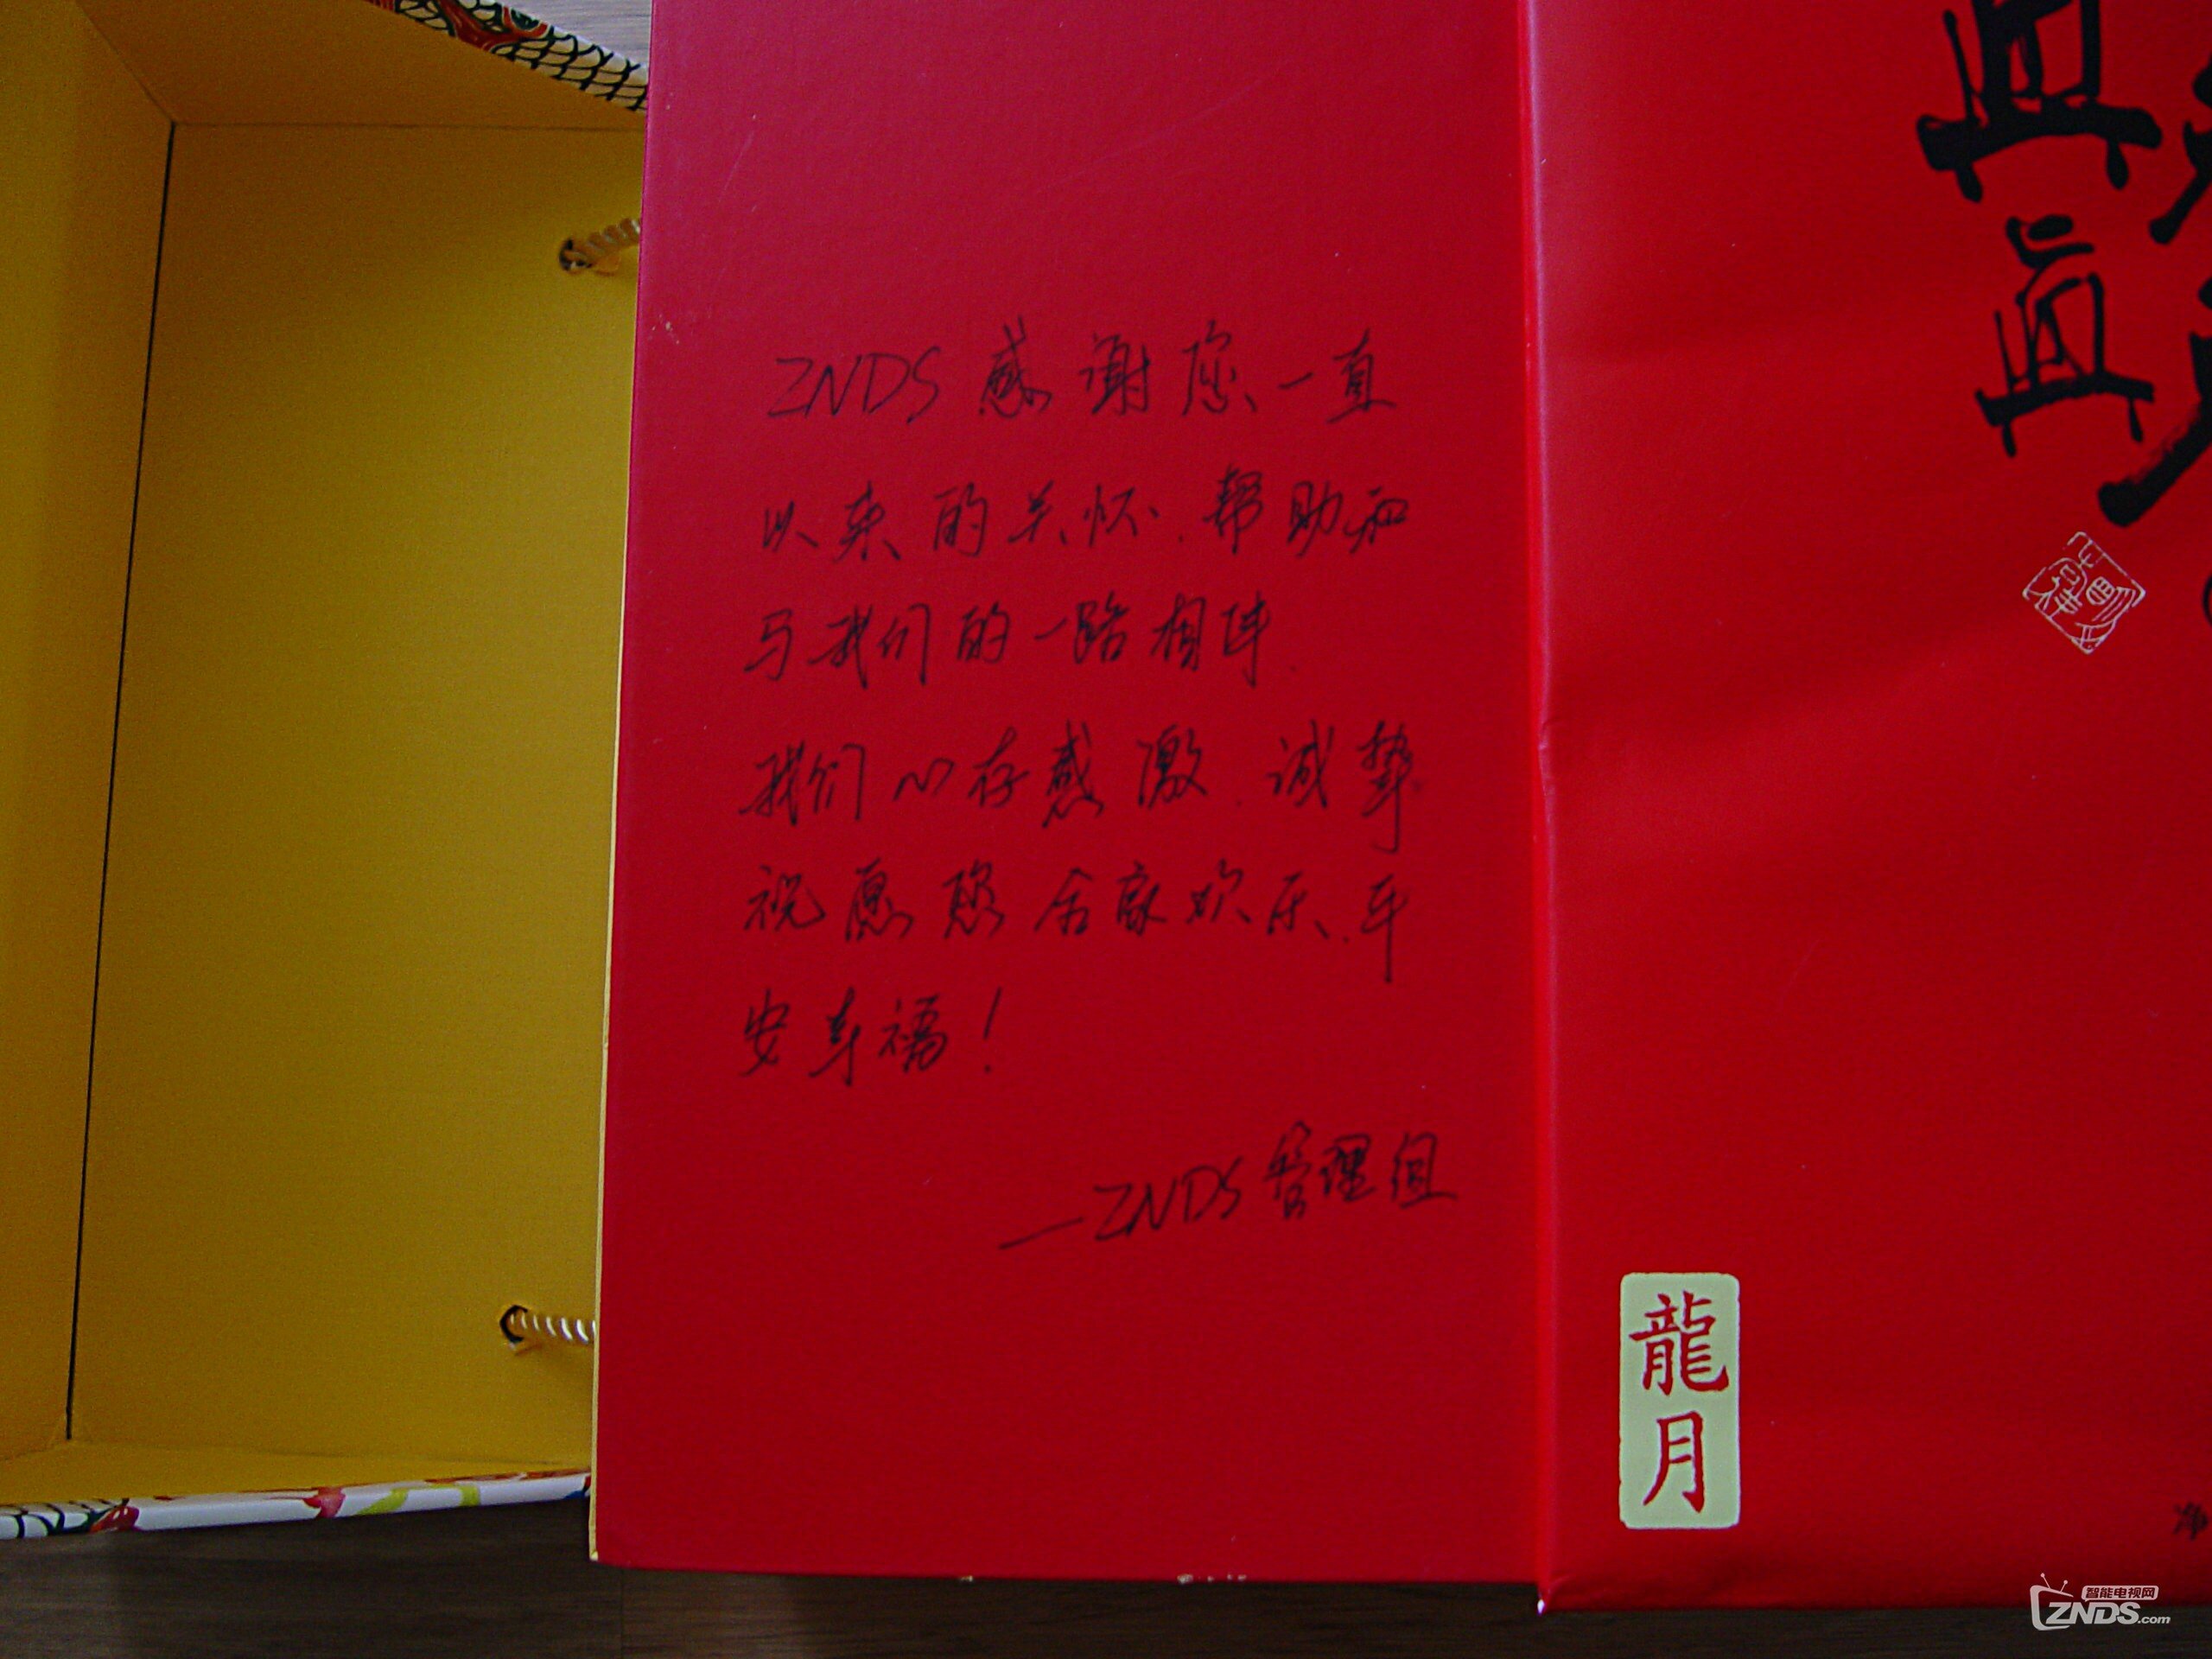 ZNDS感谢您一直
以来的关怀、帮助和
与我们的一路相伴.
我们心存感激.诚挚
祝愿您合家欢乐.平
安幸福!
—ZNDS管理组
龍
月
净
智能电视网
ZNDS.com